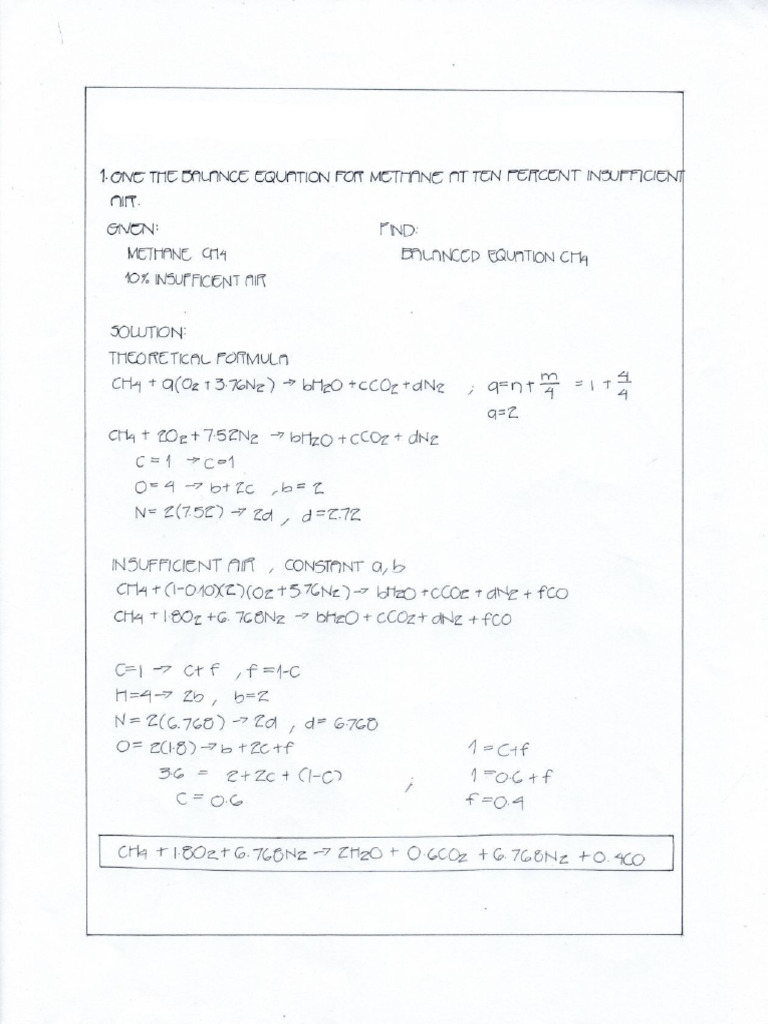 1. GIVE THE BALANCE EQUATION FOR METHANE AT TEN PERCENT INSUFFICIENT
AIR.
GIVEN: FIND:
METHANE CH4 BALANCED EQUATION CH4
10% INSUFFICIENT AIR
SOLUTION:
THEORETICAL FORMULA
CH4 + a(O2 + 3.76N2) → bH2O + cCO2 + dN2 ; a = n + m/4 = 1 + 4/4
a=2
CH4 + 2O2 + 7.52N2 → bH2O + cCO2 + dN2
C = 1 → c=1
O = 4 → b + 2c , b = 2
N = 2(7.52) → 2d , d = 2.72
INSUFFICIENT AIR , CONSTANT a, b
CH4 + (1-0.10)(2)(O2 + 5.76N2) → bH2O + cCO2 + dN2 + fCO
CH4 + 1.8O2 + 6.768N2 → bH2O + cCO2 + dN2 + fCO
C=1 → c+f , f=1-c
H=4 → 2b , b=2
N = 2(6.768) → 2d , d= 6.768
O= 2(1.8) → b + 2c + f 1 = c+f
3.6 = 2 + 2c + (1-c) ; 1 = 0.6 + f
c = 0.6 f = 0.4
CH4 + 1.8O2 + 6.768N2 → 2H2O + 0.6CO2 + 6.768N2 + 0.4CO